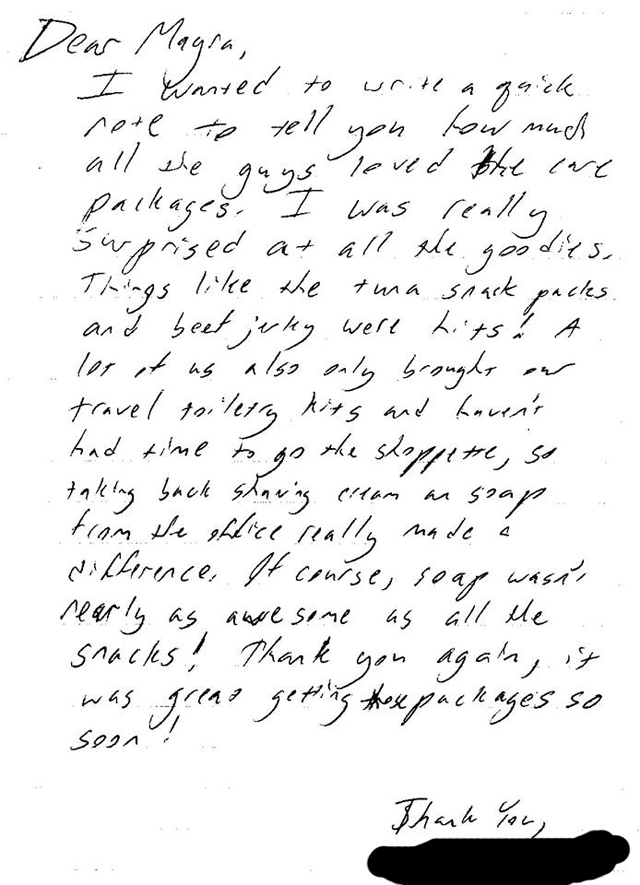 Dear Mayra,
I wanted to write a quick
note to tell you how much
all the guys loved the care
packages. I was really
surprised at all the goodies.
Things like the tuna snack packs
and beef jerky were hits! A
lot of us also only brought our
travel toiletry kits and haven't
had time to go the shoppette, so
taking back shaving cream an soap
from the office really made a
difference. Of course, soap wasn't
nearly as awesome as all the
snacks! Thank you again, it
was great getting these packages so
soon!
Thank You,